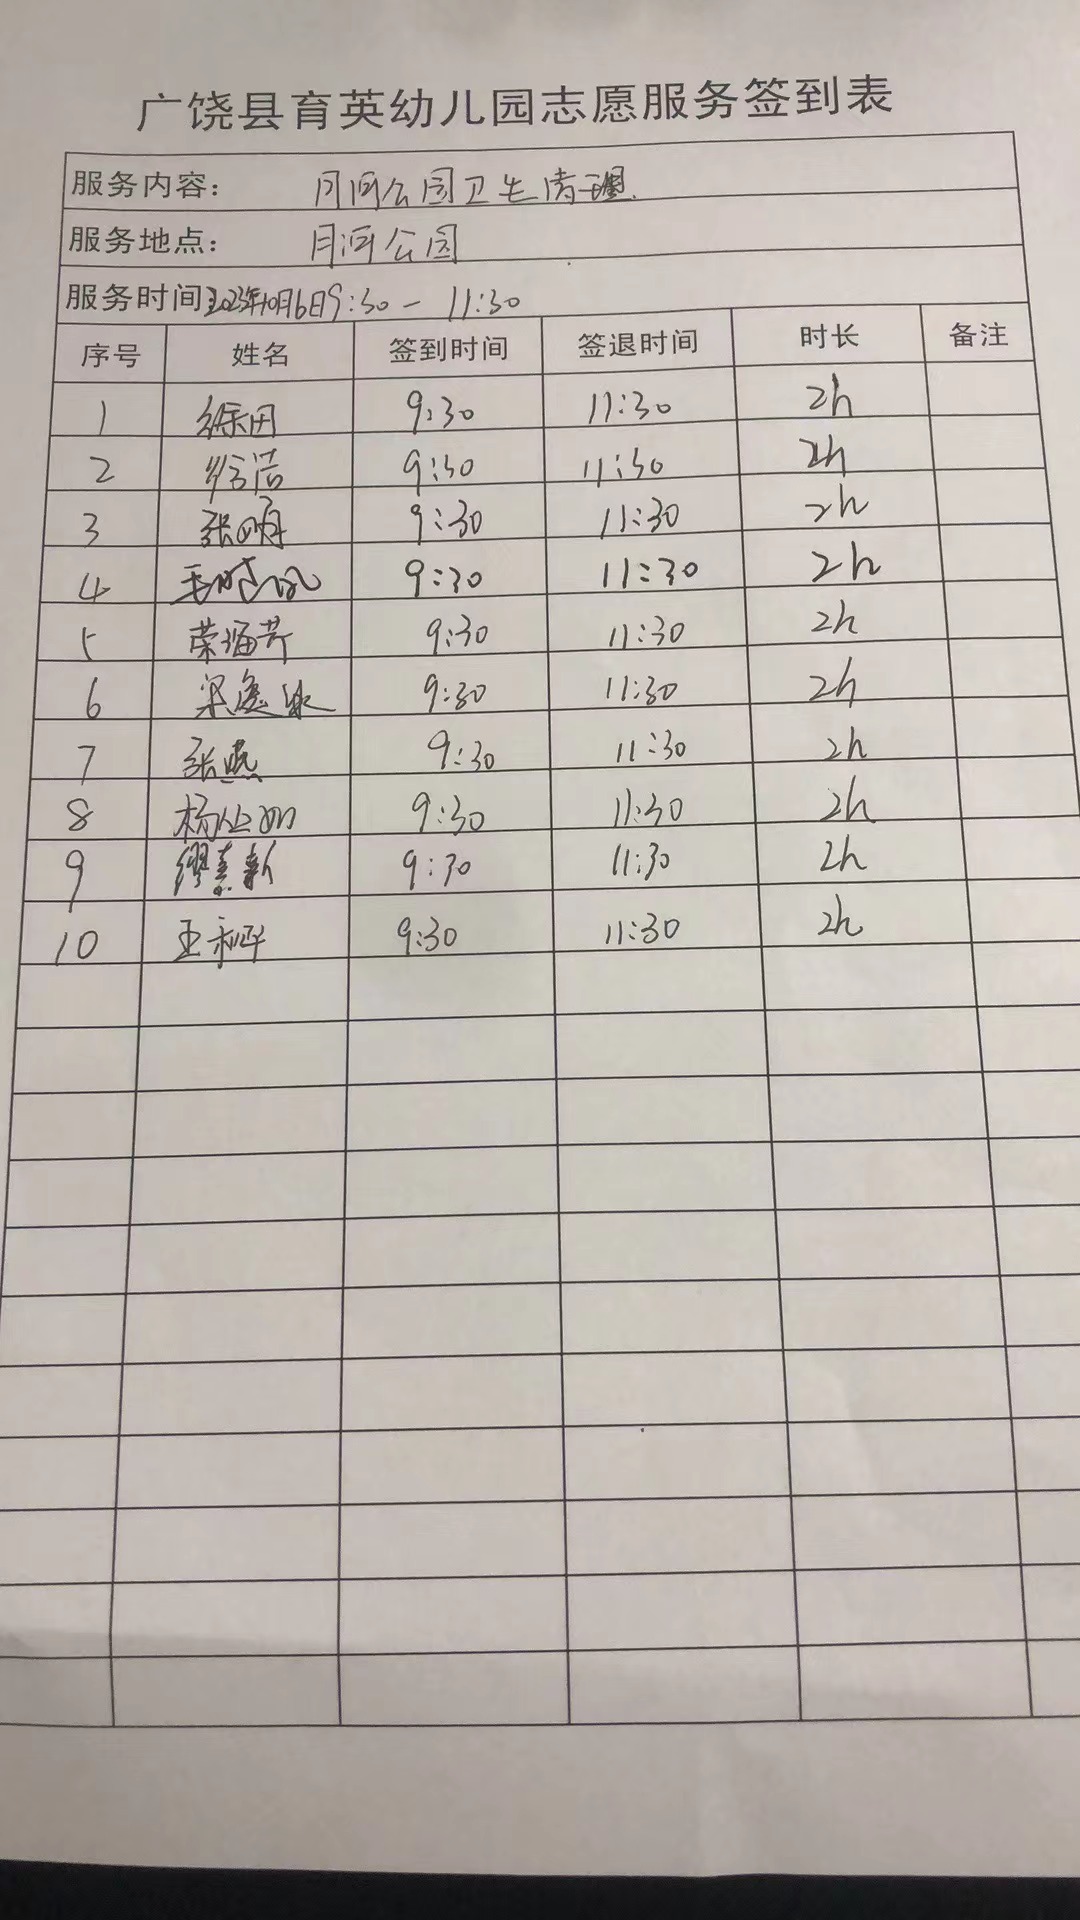 广饶县育英幼儿园志愿服务签到表
服务内容： 月河公园卫生清理.
服务地点： 月河公园
服务时间 2023年10月6日9:30 — 11:30
序号 姓名 签到时间 签退时间 时长 备注
1 徐田 9:30 11:30 2h
2 9:30 11:30 2h
3 张明 9:30 11:30 2h
4 9:30 11:30 2h
5 荣海芹 9:30 11:30 2h
6 9:30 11:30 2h
7 张燕 9:30 11:30 2h
8 9:30 11:30 2h
9 9:30 11:30 2h
10 王利华 9:30 11:30 2h